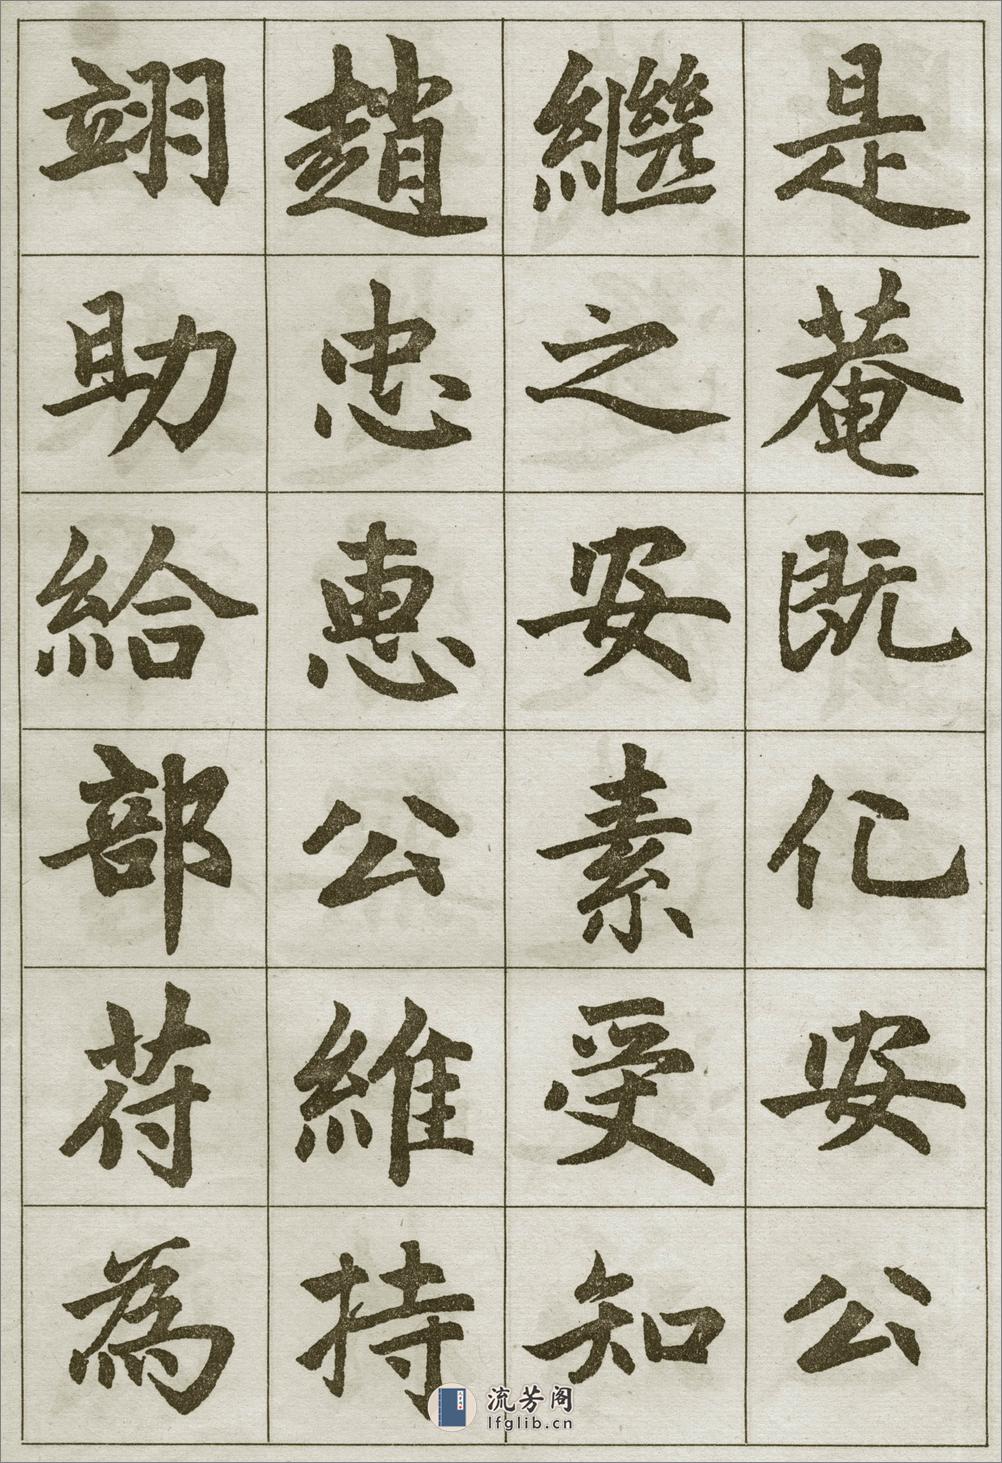 是菴既化安公
繼之安素受知
趙忠惠公維持
翊助給部苻為
流芳阁
lfglib.cn